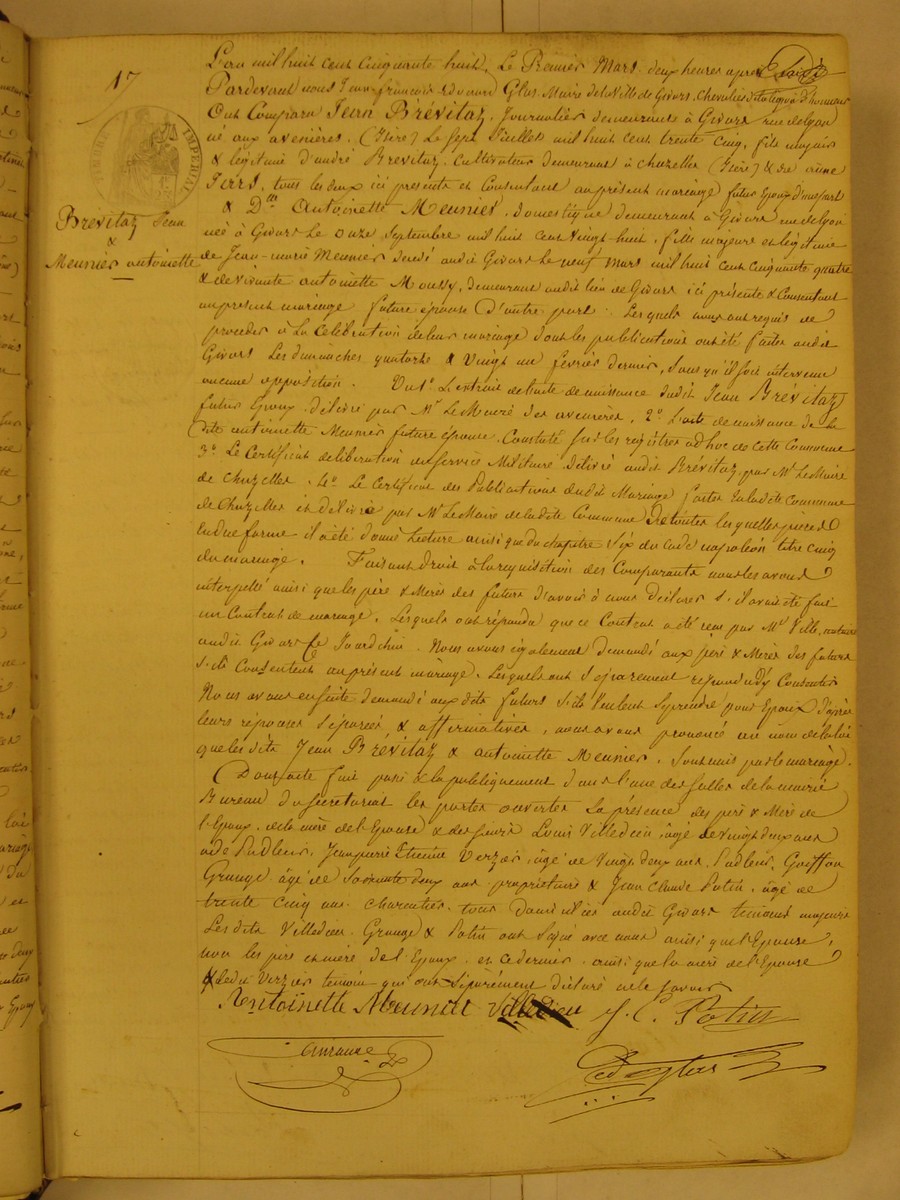 17
IMPERIAL
Brévitaz Jean
&
Meunier antoinette
L'an mil huit cent cinquante huit, Le Premier Mars deux heures après
Pardevant nous Jean françois édouard Glas Maire de la Ville de Givors, Chevalier de la légion d'honneur
Ont Comparu Jean Brévitaz, Journalier demeurant à Givors rue de Lyon
né aux avenières (Isère) Le Sept Juillet mil huit cent trente cinq, fils majeur
& légitime d'andré Brévitaz, Cultivateur demeurant à chuzelles (Isère) & de anne
tous les deux ici présents et Consentant au présent mariage futur Epoux d'une part
& Dlle Antoinette Meunier, domestique demeurant à Givors rue de Lyon
née à Givors Le onze Septembre mil huit cent vingt huit, fille majeure et légitime
de Jean-marie Meunier décédé audit Givors Le neuf Mars mil huit cent cinquante quatre
& de vivante antoinette Moussy, demeurant audit lieu de Givors ici présente & Consentant
au présent mariage future épouse D'autre part. Lesquels nous ont requis de
procéder à La Célébration de leur mariage dont les publications ont été faites audit
Givors Les dimanches quatorze & vingt un février dernier, Sans qu'il soit intervenu
aucune opposition. Vu 1° L'extrait de l'acte de naissance dudit Jean Brévitaz
futur Epoux délivré par Mr Le Maire des avenières, 2° L'acte de naissance de la
dite antoinette Meunier future épouse Constaté sur les registres ad hoc de cette Commune
3° Le Certificat de libération du Service Militaire délivré audit Brévitaz par Mr Le Maire
de Chuzelles 4° Le Certificat des Publications dudit Mariage faites en ladite Commune
de Chuzelles et délivré par Mr Le Maire de ladite Commune, De toutes lesquelles pièces
En due forme il a été donné Lecture ainsi que du chapitre Six du Code napoléon titre cinq
du mariage. Faisant droit à la requisition des Comparants nous les avons
interpellé ainsi que les père & Mères des futurs d'avoir à nous déclarer s'il avait été fait
un Contrat de mariage, Lesquels ont répondu que ce Contrat a été reçu par Me Ville, notaire
audit Givors Le Jourd'hui. Nous avons également demandé aux père & Mères des futurs
s'ils Consentent au présent mariage, Lesquels ont Séparement répondu y Consentir
Nous avons ensuite demandé aux dits futurs S'ils veulent Se prendre pour Epoux, D'après
leurs réponses Séparées, & affirmatives, nous avons prononcé au nom de la loi
que les dits Jean Brévitaz & antoinette Meunier, Sont unis par le mariage.
Dont acte fait passé & lu publiquement dans l'une des Salles de la mairie
Bureau du Secrétariat les portes ouvertes En présence des père & Mère de
l'Epoux, de la mère de l'Epouse & des Sieurs Louis Villedieu, âgé de vingt deux ans
Jean pierre Etienne Verzier, âgé de vingt deux ans, Goiffon
Grange âgé de Soixante deux ans propriétaire & Jean Claude Potin, âgé de
trente cinq ans Charentier, tous domiciliés audit Givors témoins majeurs
Les dits Villedieu Grange & Potin ont Signé avec nous ainsi que l'Epouse,
non les père et mère de l'Epoux et ce dernier ainsi que la mère de l'Epouse
& ledit Verzier témoin qui ont Séparément déclaré ne le Savoir
Antoinette Meunier Villedieu J. C. Potin
Grange
Ed Glas